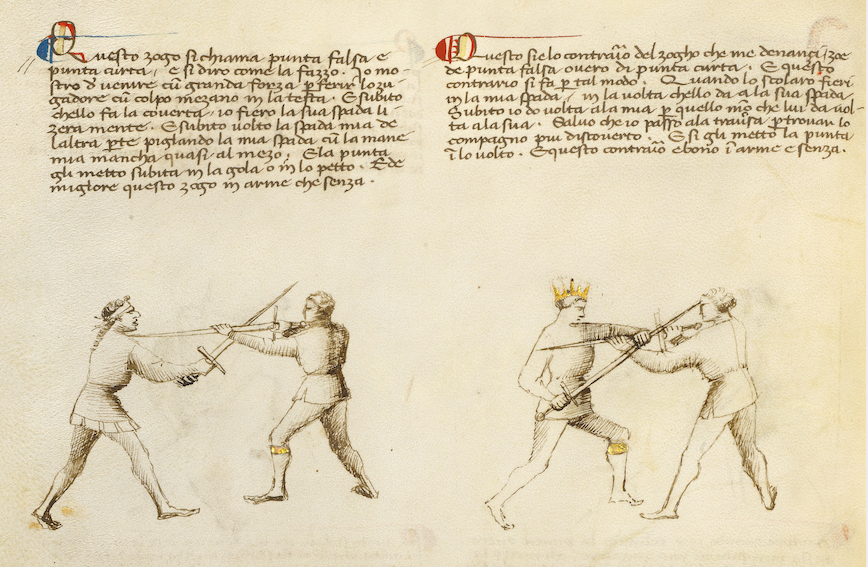 Questo zogo si chiama punta falsa e
punta curta, e si diro come la fazzo. Io mo-
stro d' venire cū granda forza p ferir lo zu-
gadore cū colpo mezano in la testa. E subito
chello fa la coverta, io fiero la sua spada li-
zera mente. E subito volto la spada mia de
laltra pte piglando la mia spada cū la mane
mia mancha quasi al mezo. E la punta
gli metto subita in la gola o in lo petto. Ed e
miglore questo zogo in arme che senza.
Questo sie lo contraīo del zogho che me denançi, zoe
de punta falsa overo di punta curta. E questo
contrario si fa p tal modo. Quando lo scolaro fieri
in la mia spada, in la volta chello da a la sua spada
Subito io do volta ala mia p quello mō che lui da vol-
ta ala sua. Salvo che io passo ala traūsa p trovar lo
compagno piu discoverto. E si gli metto la punta
ī lo volto. E questo contraīo e bono ī arme e senza.